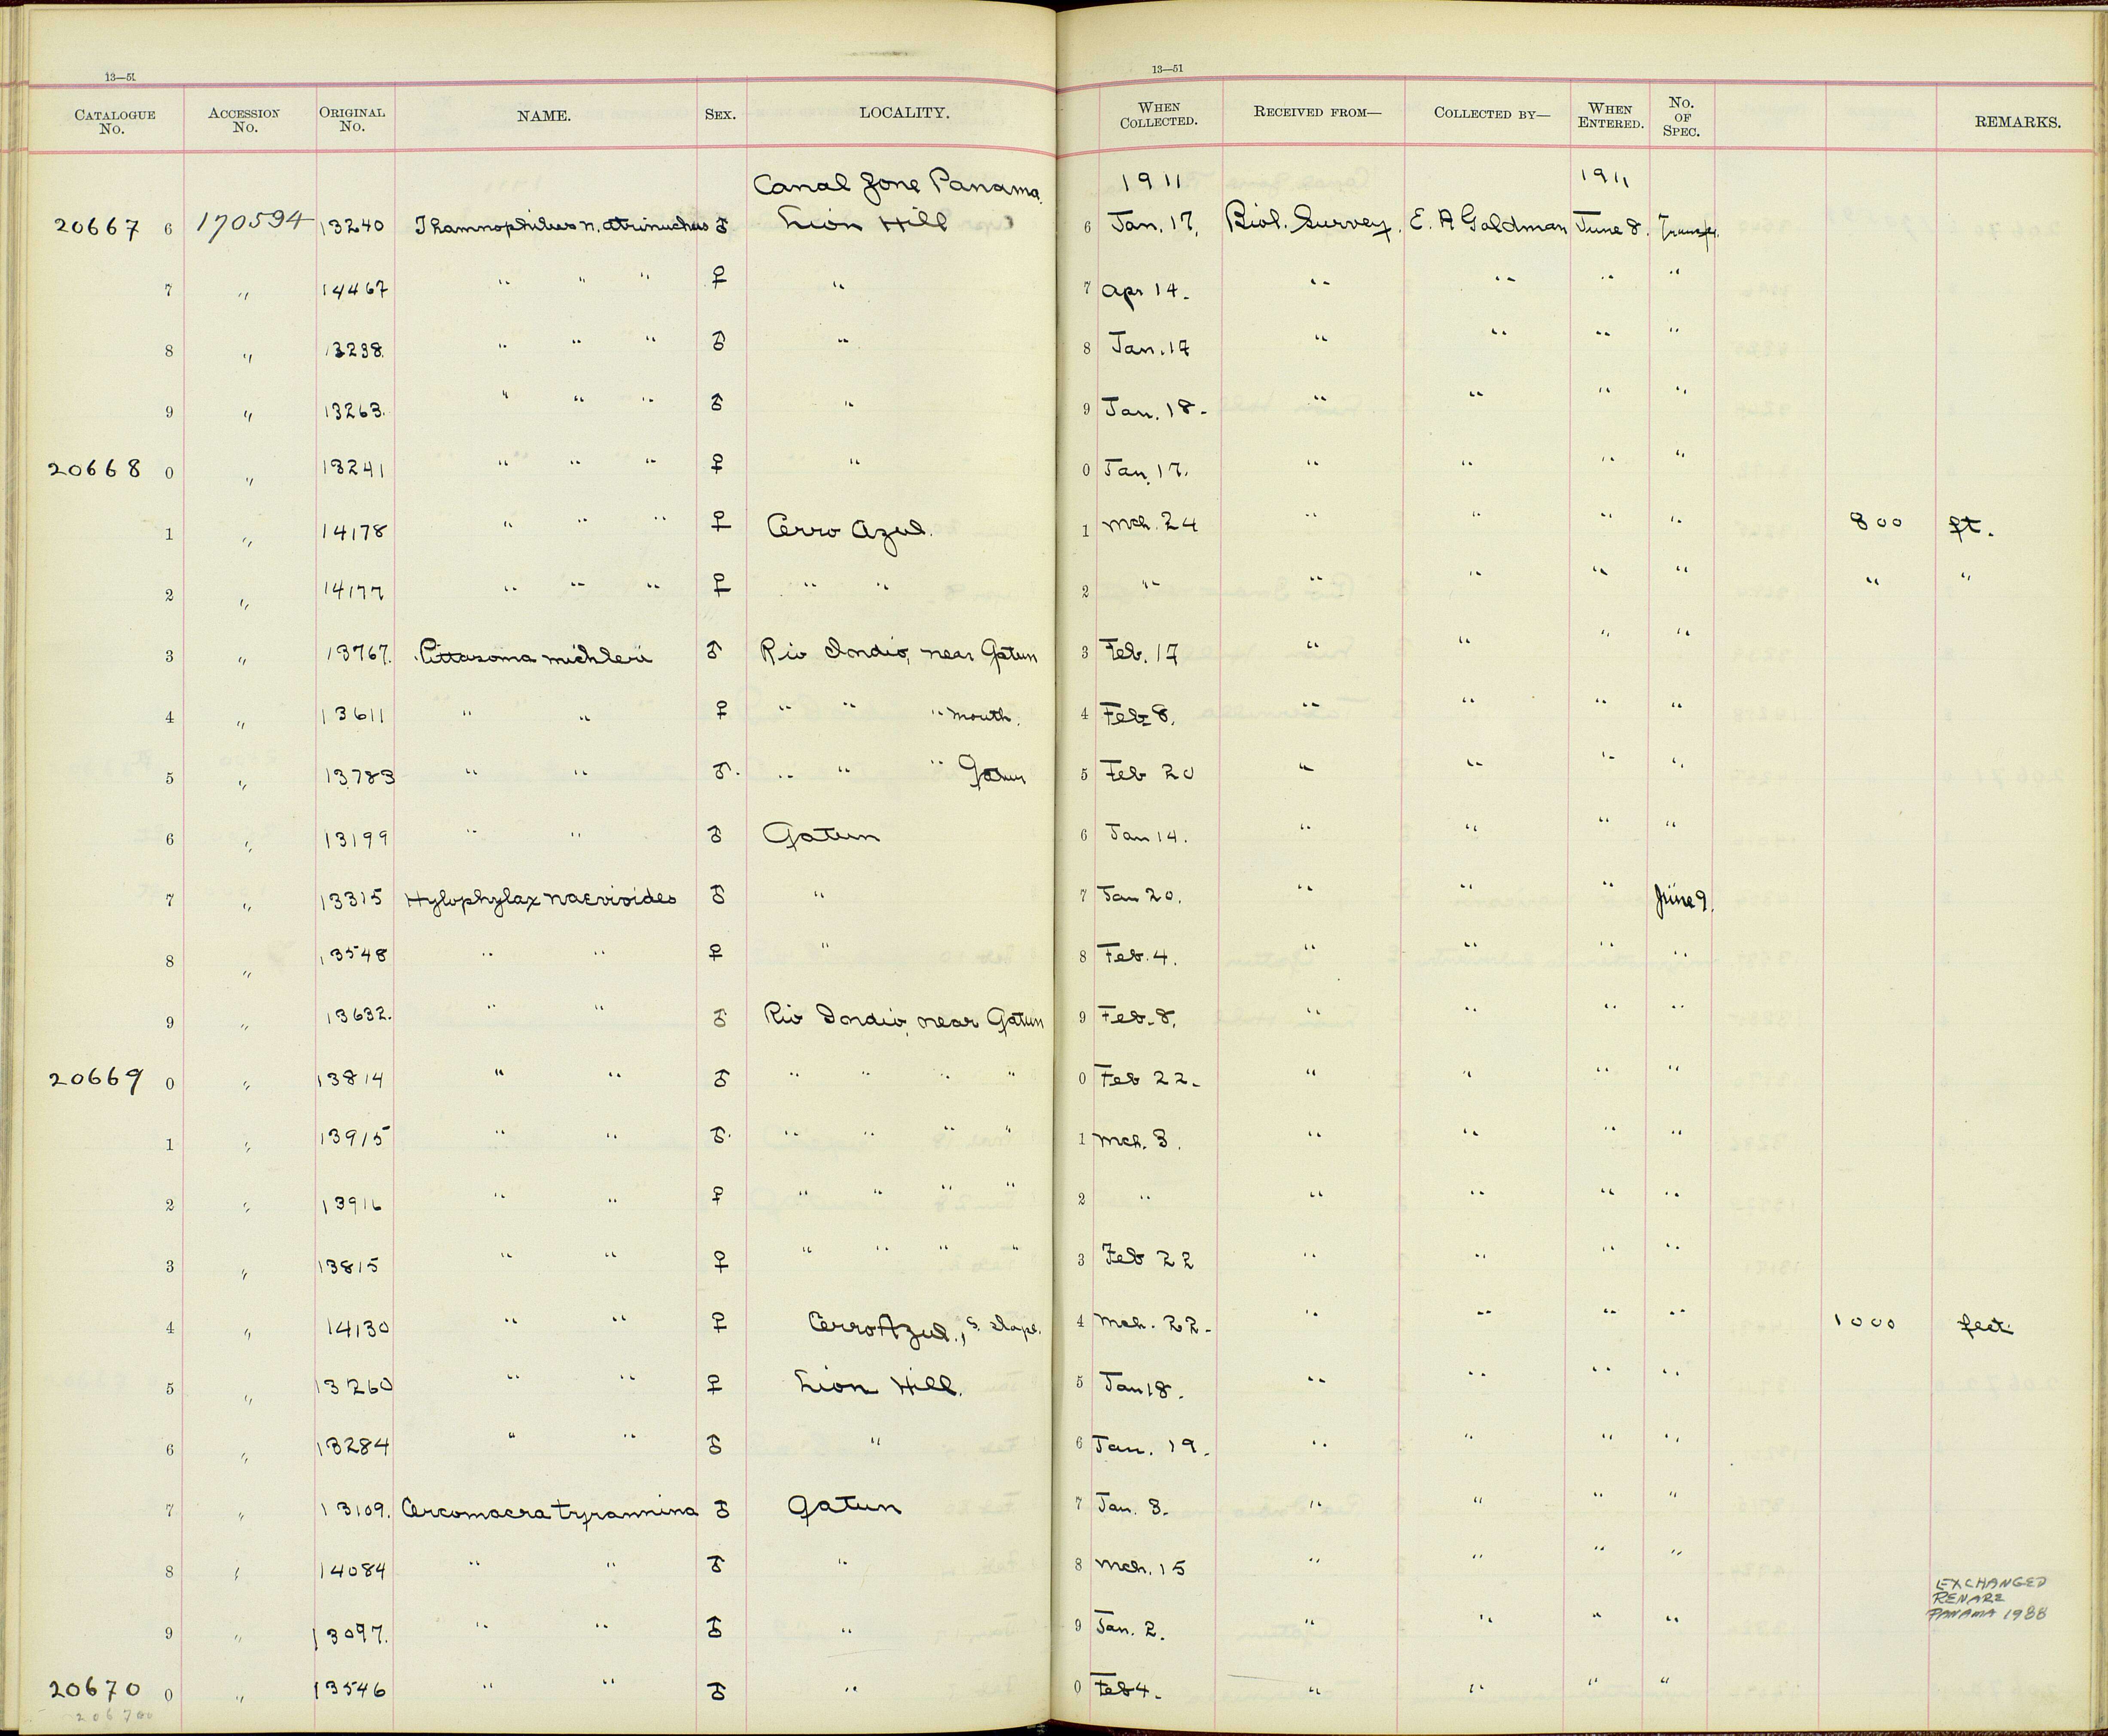 13—51 13—51
CATALOGUE No. ACCESSION No. ORIGINAL No. NAME. SEX. LOCALITY. WHEN COLLECTED. RECEIVED FROM— COLLECTED BY— WHEN ENTERED. No. OF SPEC. REMARKS.
Canal Zone Panama. 1911 1911
20667 6 170594 13240 Thamnophilus n. atrinuchus ♂ Lion Hill 6 Jan. 17, Biol. Survey. E. A Goldman June 8. Transf.
7 " 14467 " " " ♀ " 7 Apr 14. " " " "
8 " 13238. " " " ♂ " 8 Jan. 17 " " " "
9 " 13263. " " " ♂ " 9 Jan. 18. " " " "
20668 0 " 13241 " " " ♀ " 0 Jan. 17. " " " "
1 " 14178 " " " ♀ Cerro Azul. 1 Mch. 24 " " " " 800 ft.
2 " 14177 " " " ♀ " " 2 " " " " " " "
3 " 13767. Pittasoma michleri ♂ Rio Indio, near Gatun 3 Feb. 17 " " " "
4 " 13611 " " ♀ " " " mouth. 4 Feb 8. " " " "
5 " 13783 " " ♂. " " " Gatun 5 Feb 20 " " " "
6 " 13199 " " ♂ Gatun 6 Jan 14. " " " "
7 " 13315 Hylophylax naevioides ♂ " 7 Jan 20. " " " June 9.
8 " 13548 " " ♀ " 8 Feb. 4. " " " "
9 " 13632. " " ♂ Rio Indio, near Gatun 9 Feb. 8. " " " "
20669 0 " 13814 " " ♂ " " " " 0 Feb 22. " " " "
1 " 13915 " " ♂. " " " " 1 Mch. 3. " " " "
2 " 13916 " " ♀ " " " " 2 " " " " "
3 " 13815 " " ♀ " " " " 3 Feb 22 " " " "
4 " 14130 " " ♀ Cerro Azul., S. slope. 4 Mch. 22. " " " " 1000 feet
5 " 13260 " " ♀ Lion Hill. 5 Jan 18. " " " "
6 " 13284 " " ♂ " 6 Jan. 19. " " " "
7 " 13109. Cercomacra tyrannina ♂ Gatun 7 Jan. 3. " " " "
8 " 14084 " " ♂ " 8 Mch. 15 " " " "
EXCHANGED
RENARE
PANAMA 1988
9 " 13097. " " ♂ " 9 Jan. 2. " " " "
20670 0 " 13546 " " ♂ " 0 Feb 4. " " " "
206700